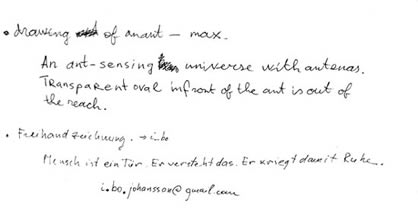 • drawing of an ant – max.
An ant-sensing universe with antenas.
Transparent oval infront of the ant is out of
the reach.
• Freihandzeichnung. → i_bo
Mensch ist ein Tür. Er versteht das. Er kriegt damit Ruhe.
i.bo.johansson@gmail.com